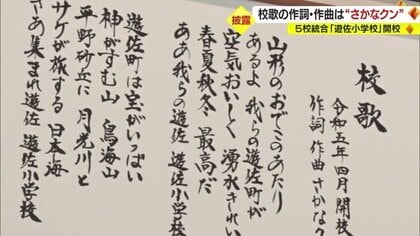 披露
校歌の作詞・作曲は“さかなクン”
５校統合「遊佐小学校」開校
校歌
令和五年四月開校
作詞 作曲 さかなク
山形のおでこのあたり
あるよ 我らの遊佐町が
空気おいしく 湧水きれい
春夏秋冬 最高だ
ああ 我らの遊佐 遊佐小学校
遊佐町は宝がいっぱい
神がすむ山 鳥海山
平野砂丘に 月光川と
サケが旅する 日本海
さあ集まれ遊佐 遊佐小学校